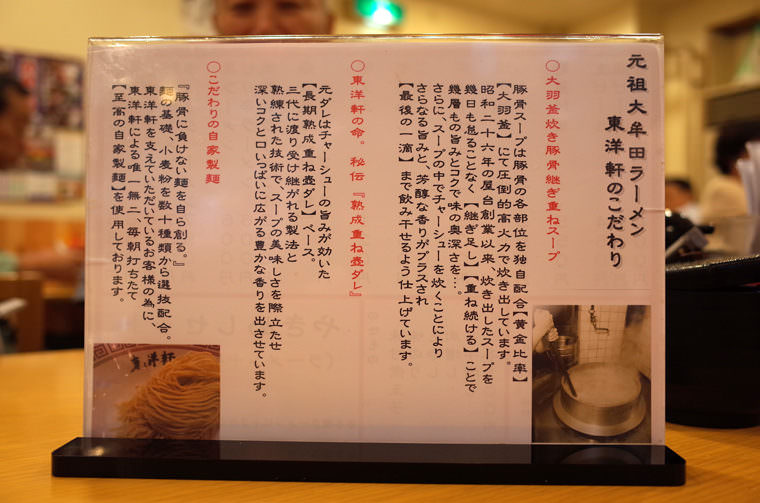 元祖大牟田ラーメン
東洋軒のこだわり
○大羽釜炊き豚骨継ぎ重ねスープ
豚骨スープは豚骨の各部位を独自配合【黄金比率】
【大羽釜】にて圧倒的高火力で炊き出しています。
昭和二十六年の屋台創業以来、炊き出したスープを
幾日も怠ることなく【継ぎ足し】【重ね続ける】ことで
幾層もの旨みとコクで味の奥深さを…。
さらに、スープの中でチャーシューを炊くことにより
さらなる旨みと、芳醇な香りがプラスされ
【最後の一滴】まで飲み干せるよう仕上げています。
○東洋軒の命。秘伝『熟成重ね壺ダレ』
元ダレはチャーシューの旨みが効いた
【長期熟成重ね壺ダレ】ベース。
三代に渡り受け継がれる製法と
熟練された技術で、スープの美味しさを際立たせ
深いコクと口いっぱいに広がる豊かな香りを出させています。
○こだわりの自家製麺
『豚骨に負けない麺を自ら創る。』
麺の基礎、小麦粉を数十種類から選抜配合。
東洋軒を支えていただいているお客様の為に、
東洋軒による唯一無二、毎朝打ちたて
【至高の自家製麺】を使用しております。
東洋軒